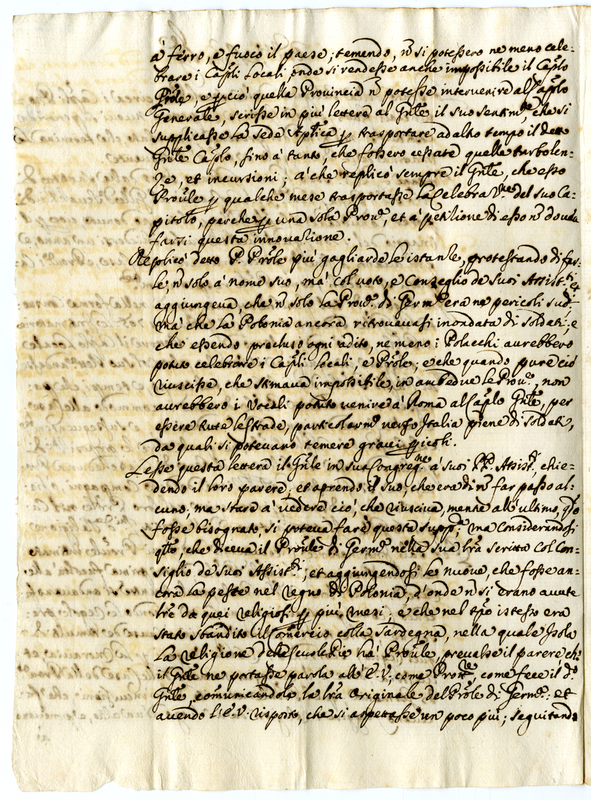 à ferro, e fuoco il paese; temendo, ñ si potessero ne meno cele-
brare i Capli Locali onde si rendesse anche impossibile il Caplo
Prõle, e però quella Provincia ñ potesse intervenire al Caplo
Generale, scrisse in più lettere al Gñle il suo sentim.to, che si
supplicasse la Sede Aplica p trasportare ad altro tempo il detto
Gñle Caplo, fino à tanto, che fossero cessate quelle turbolen-
ze, et incursioni; à che replicò sempre il Gñle, che esso
Proũle p qualche mese trasportasse la Celebra.ne del suo Ca-
pitolo, perche p una sola Prov.a, et a petitione di esso ñ doveva
farsi questa innovatione.
Replicò detto P. Prõle più gagliarde le istanze, protestando di far-
le, ñ solo à nome suo, mà col voto, e Conseglio de Suoi Assist.ti, et
aggiungeva, che ñ solo la Prov.a di Germ.a era ne pericoli sud.i
ma che la Polonia ancora ritrovavasi inondata di soldati, e
che essendo precluso ogni adito, ne meno i Polacchi aurebbero
potuto celebrare i Capli Locali, e Prõle; e che quando pure ciò
riuscisse, che stimava impossibile, in ambedue le Prov.e, non
aurebbero i Vocali potuto venire à Roma al Caplo Gñle, per
essere tutte le strade, particolarm.e verso Italia piene di soldati,
da quali si potevano temere gravi pericoli.
Lesse questa lettera il Gñle in sua Congreg.ne a suoi PP. Assist.ti chie-
dendo il loro parere, et aprendo il suo, che era di ñ far passo al-
cuno, ma stare à vedere ciò, che riusciva, mentre all'ultimo, q.do
fosse bisognato si poteva fare questa supp.ca ma considerandosi
q.llo, che diceva il Proũle di Germ.a nella sua lrã scritta col Con-
siglio de suoi Assist.ti; et aggiungendosi le nuove, che fosse an-
cora la peste nel Regno di Polonia, d'onde ñ si erano avute
lrẽ da quei Religiosi p più mesi, e che nel tpo istesso era
stato sbandito il Comercio colla Sardegna, nella quale Isola
la Religione delle Scuole Pie hà Proũle, prevalse il parere che
il Gñle ne portasse parola all'E.V. come Prot.re, come fece il d.o
Gñle, comunicandole la lrã originale del Prõle di Germ.a, et
avendo l'E.V. risposto, che si aspettasse un poco più; seguitando